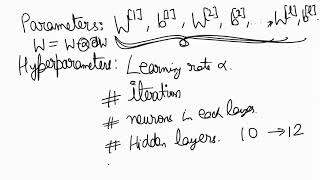 Parameters: W[1], b[1], W[2], b[2], ..., W[L], b[L].
W = W - α dW
Hyperparameters: Learning rate α.
# iteration
# neurons in each layer.
# Hidden layers. 10 → 12